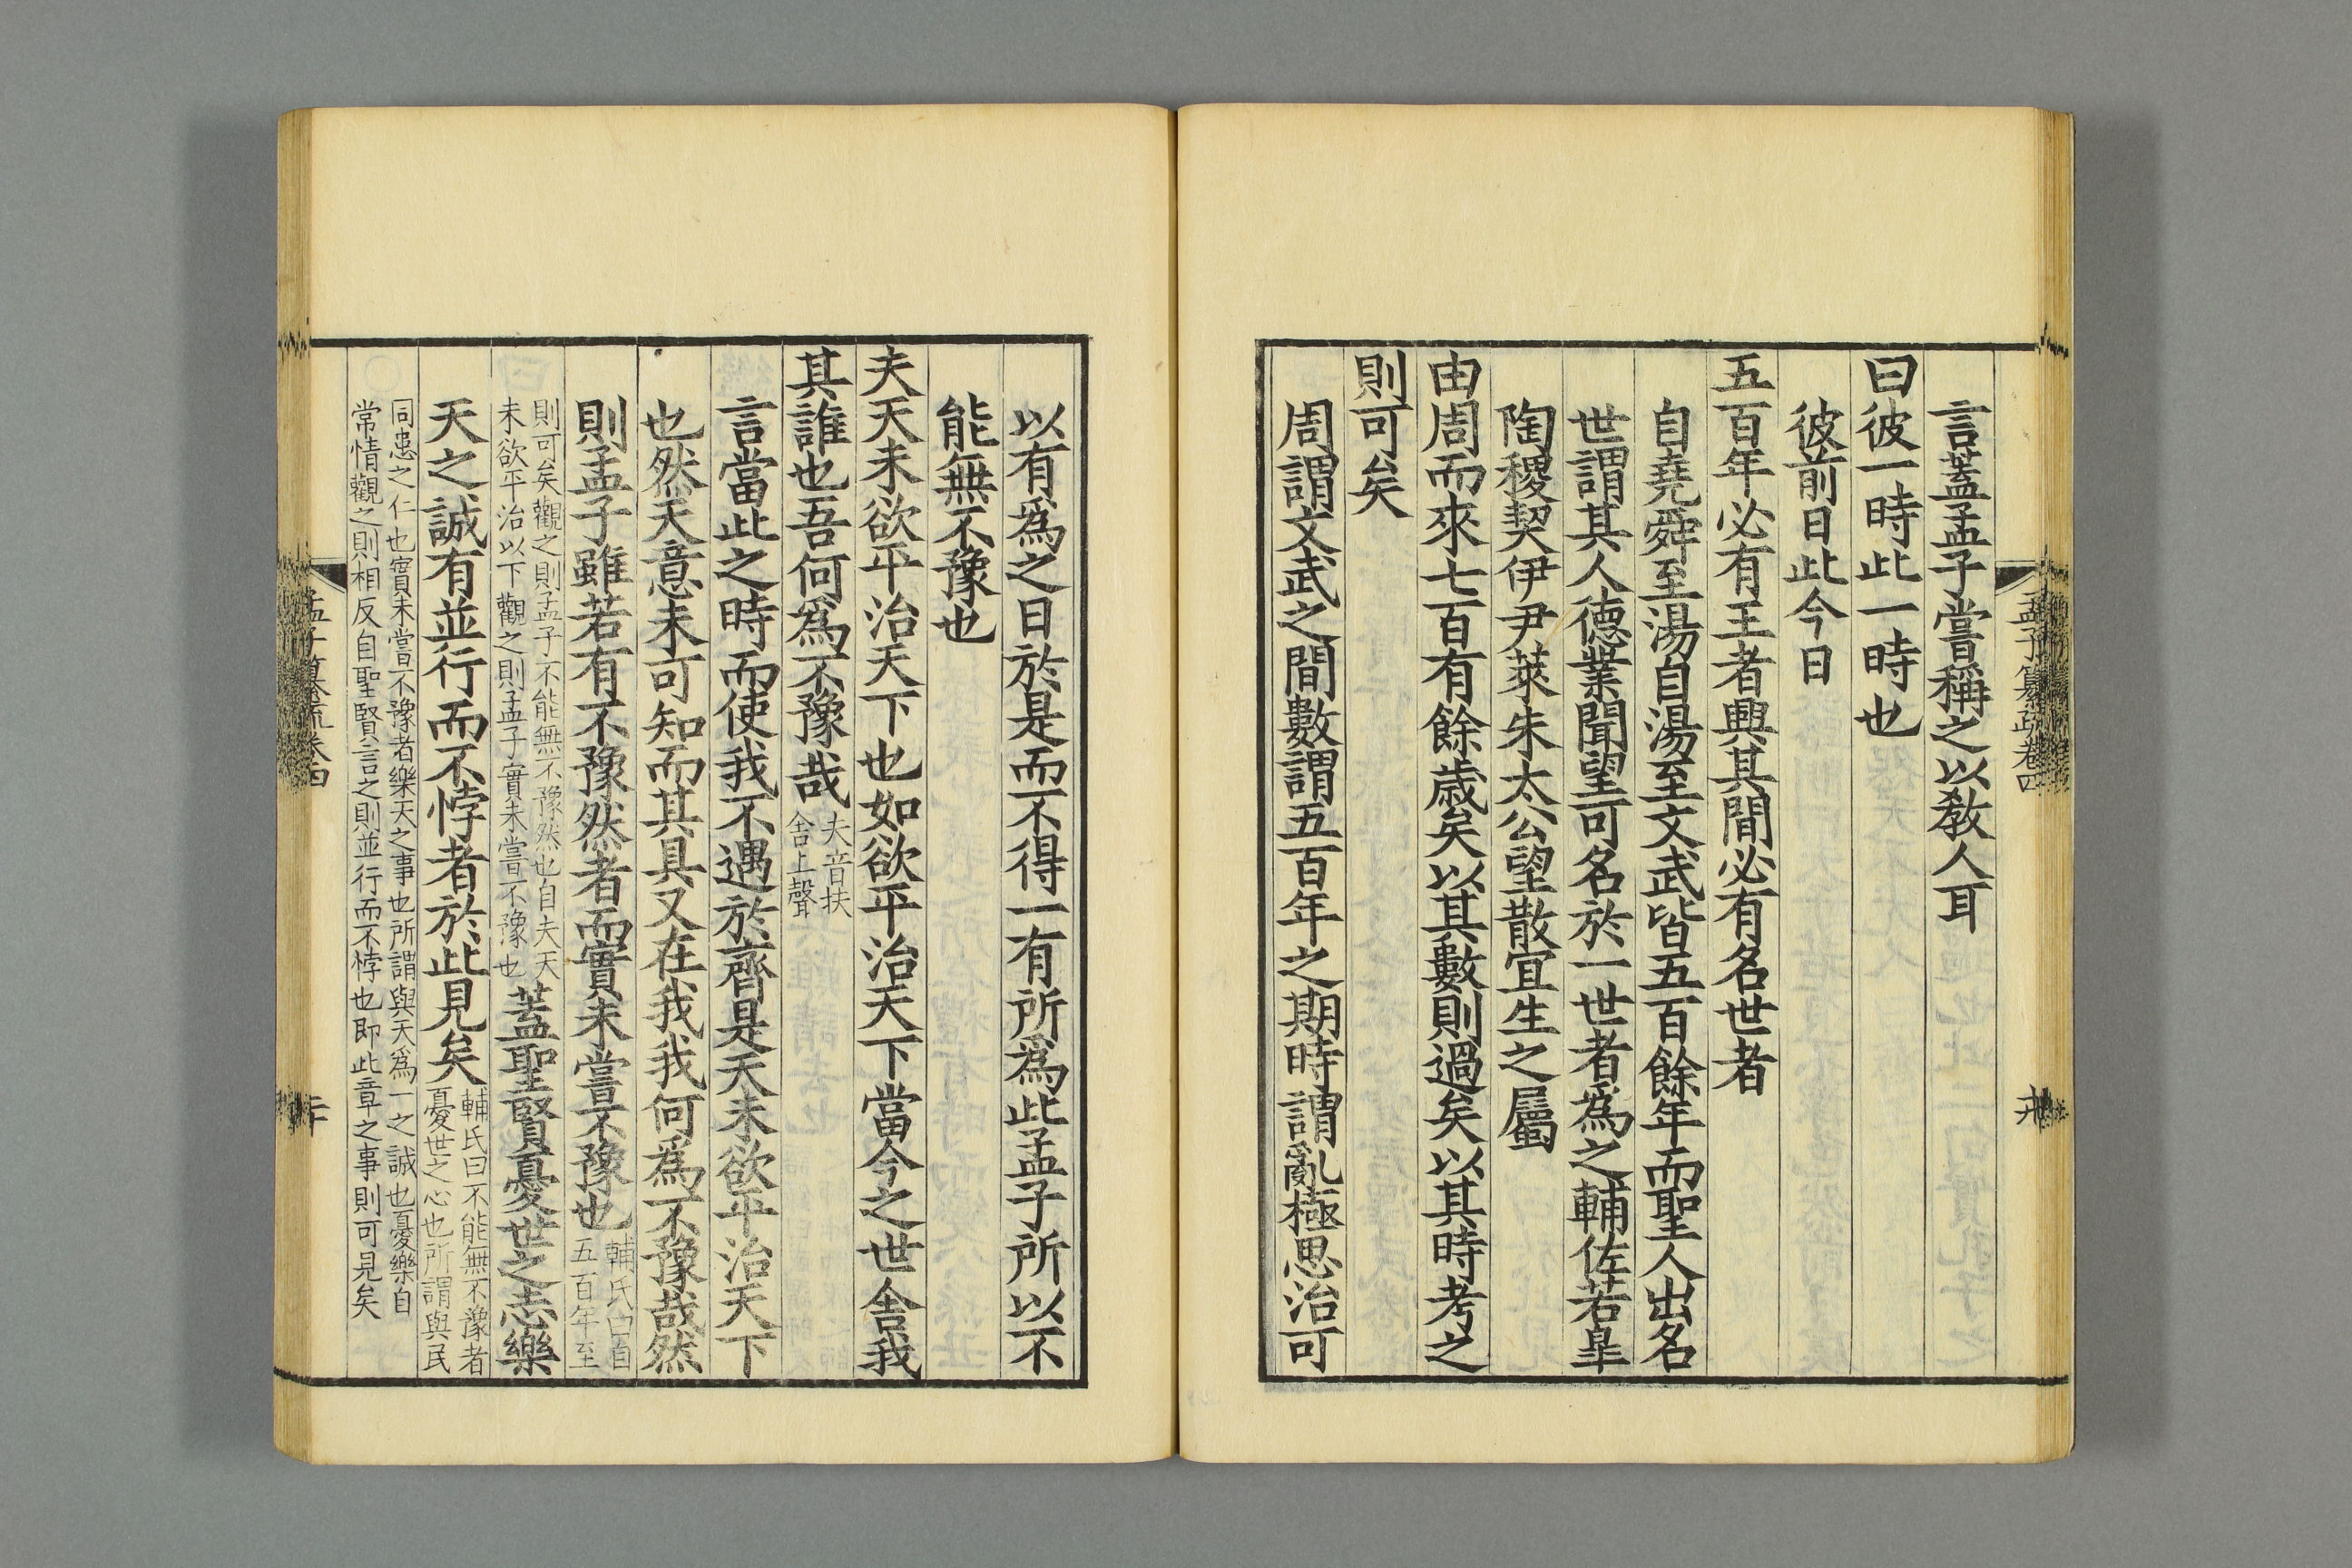 言蓋孟子嘗稱之以敎人耳
曰彼一時此一時也
彼前日此今日
五百年必有王者興其閒必有名世者
自堯舜至湯自湯至文武皆五百餘年而聖人出名
世謂其人德業聞望可名於一世者爲之輔佐若皐
陶稷契伊尹萊朱太公望散宜生之屬
由周而來七百有餘歲矣以其數則過矣以其時考之
則可矣
周謂文武之間數謂五百年之期時謂亂極思治可
以有爲之日於是而不得一有所爲此孟子所以不
能無不豫也
夫天未欲平治天下也如欲平治天下當今之世舍我
其誰也吾何爲不豫哉夫音扶
舍上聲
言當此之時而使我不遇於齊是天未欲平治天下
也然天意未可知而其具又在我我何爲不豫哉然
則孟子雖若有不豫然者而實未嘗不豫也輔氏曰自
五百年至
則可矣觀之則孟子不能無不豫然也自夫天
未欲平治以下觀之則孟子實未嘗不豫也蓋聖賢憂世之志樂
天之誠有並行而不悖者於此見矣輔氏曰不能無不豫者
憂世之心也所謂與民
同患之仁也實未嘗不豫者樂天之事也所謂與天爲一之誠也憂樂自
常情觀之則相反自聖賢言之則並行而不悖也即此章之事則可見矣
孟子纂疏卷四